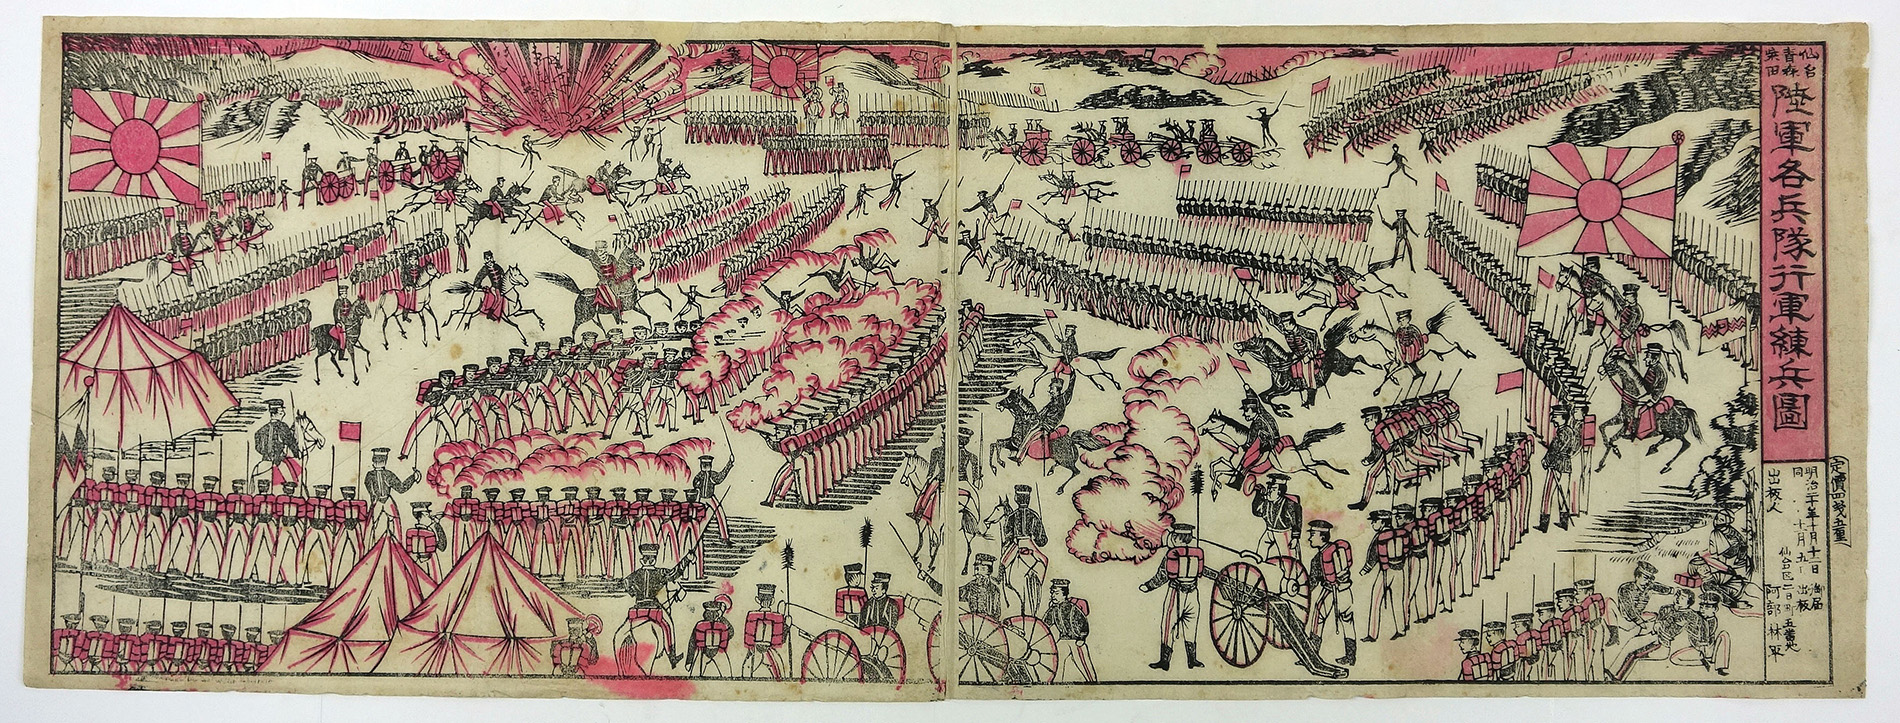 仙台
青森
柴田
陸軍各兵隊行軍練兵圖
定價四銭五厘
明治二十年十月十一日 御届
同 十月 出板
仙台区二日町五番地
出板人 阿部林平